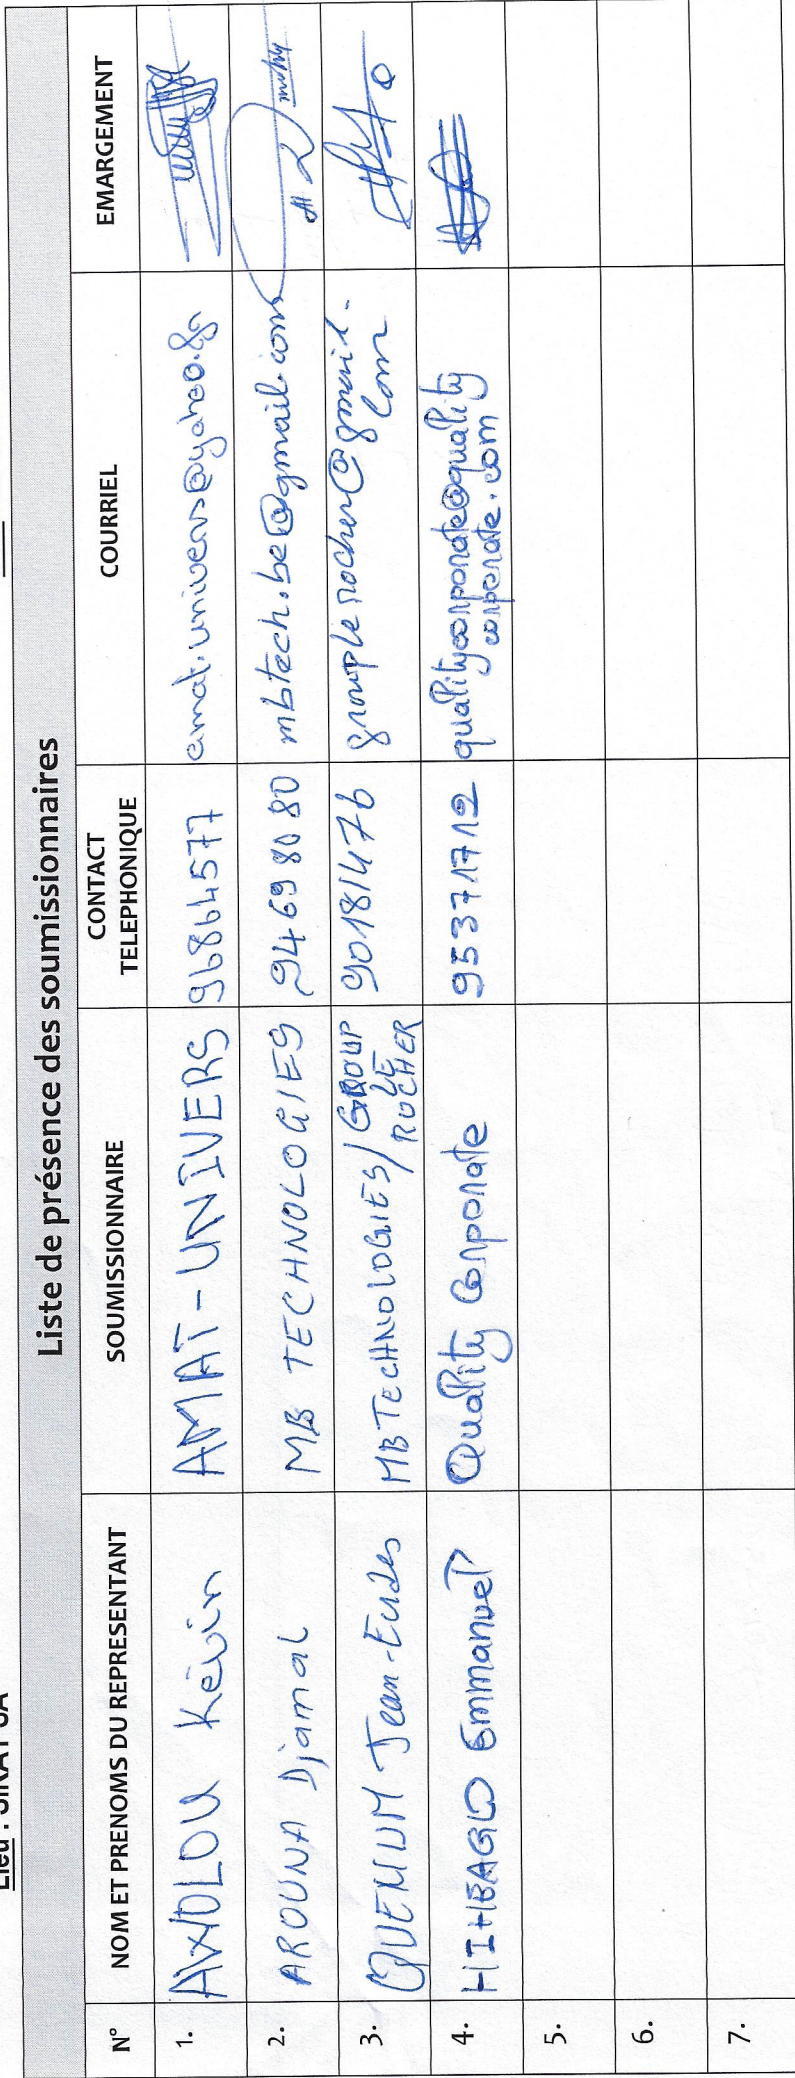 Lieu : SIRAT SA
Liste de présence des soumissionnaires
N° NOM ET PRENOMS DU REPRESENTANT SOUMISSIONNAIRE CONTACT TELEPHONIQUE COURRIEL EMARGEMENT
1. AWOLOU Kévin AMAT-UNIVERS 96864577 amat.univers@yahoo.fr
2. AROUNA Djamal MB TECHNOLOGIES 94698080 mbtech.be@gmail.com
3. QUENUM Jean-Eudes MB TECHNOLOGIES/GROUP LE ROCHER 90181476 grouplerocher@gmail.com
4. HIHEAGLO Emmanuel Quality Corporate 95371712 qualitycorporate@quality
corporate.com
5.
6.
7.